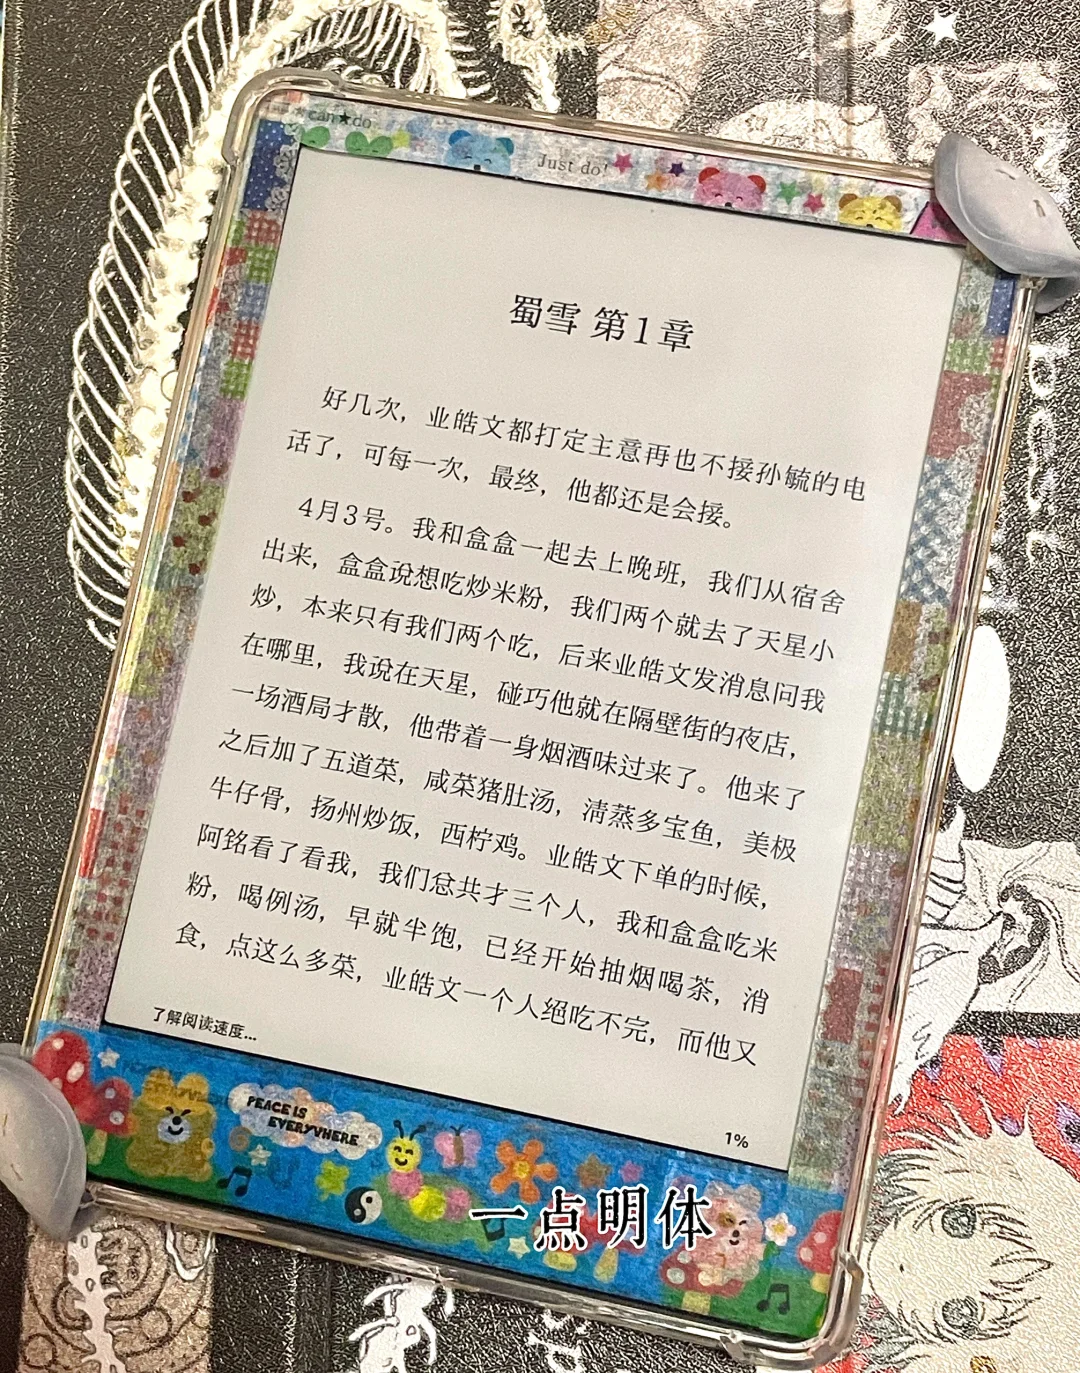 can★do
Just do!
蜀雪 第1章
好几次，业皓文都打定主意再也不接孙毓的电
话了，可每一次，最终，他都还是会接。
4月3号。我和盒盒一起去上晚班，我们从宿舍
出来，盒盒说想吃炒米粉，我们两个就去了天星小
炒，本来只有我们两个吃，后来业皓文发消息问我
在哪里，我说在天星，碰巧他就在隔壁街的夜店，
一场酒局才散，他带着一身烟酒味过来了。他来了
之后加了五道菜，咸菜猪肚汤，清蒸多宝鱼，美极
牛仔骨，扬州炒饭，西柠鸡。业皓文下单的时候，
阿铭看了看我，我们总共才三个人，我和盒盒吃米
粉，喝例汤，早就半饱，已经开始抽烟喝茶，消
食，点这么多菜，业皓文一个人绝吃不完，而他又
了解阅读速度...
1%
PEACE IS
EVERYWHERE
一点明体